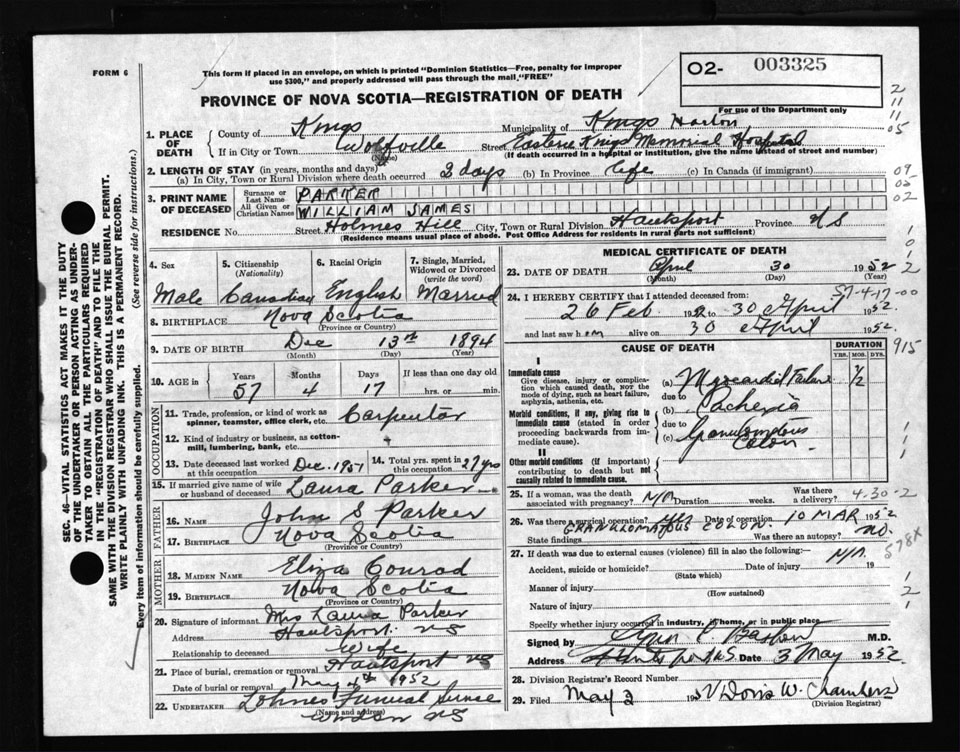 FORM 6
This form if placed in an envelope, on which is printed "Dominion Statistics—Free, penalty for improper
use $300," and properly addressed will pass through the mail "FREE"
PROVINCE OF NOVA SCOTIA—REGISTRATION OF DEATH
02- 003325
For use of the Department only
2
11
11
05
1. PLACE OF DEATH
County of Kings Municipality of Kings
If in City or Town Wolfville Street Eastern Kings Memorial Hospital
(Name)
(If death occurred in a hospital or institution, give the name instead of street and number)
2. LENGTH OF STAY (in years, months and days)
(a) In City, Town or Rural Division where death occurred 3 days (b) In Province life (c) In Canada (if immigrant)
09
03
02
3. PRINT NAME OF DECEASED
Surname or Last Name PARKER
All Given or Christian Names WILLIAM JAMES
RESIDENCE No. Street Holmes Hill City, Town or Rural Division Hantsport Province N S
(Residence means usual place of abode. Post Office Address for residents in rural parts not sufficient)
4. Sex 5. Citizenship (Nationality) 6. Racial Origin 7. Single, Married, Widowed or Divorced (write the word)
Male Canadian English Married
8. BIRTHPLACE Nova Scotia
(Province or Country)
9. DATE OF BIRTH Dec 13th 1894
(Month) (Day) (Year)
10. AGE in Years Months Days If less than one day old
57 4 17 hrs. or min.
OCCUPATION
11. Trade, profession, or kind of work as spinner, teamster, office clerk, etc. Carpenter
12. Kind of industry or business, as cotton-mill, lumbering, bank, etc.
13. Date deceased last worked at this occupation Dec. 1951 14. Total yrs. spent in this occupation 27 yrs
15. If married give name of wife or husband of deceased Laura Parker
FATHER
16. NAME John S Parker
17. BIRTHPLACE Nova Scotia
(Province or Country)
MOTHER
18. MAIDEN NAME Eliza Conrad
19. BIRTHPLACE Nova Scotia
(Province or Country)
20. Signature of informant Mrs Laura Parker
Address Hantsport. NS
Relationship to deceased Wife
21. Place of burial, cremation or removal Hantsport NS
Date of burial or removal May 4th 1952
22. UNDERTAKER Funeral
(Name and address)
NS
MEDICAL CERTIFICATE OF DEATH
23. DATE OF DEATH April 30 1952
(Month) (Day) (Year)
57-4-17-00
24. I HEREBY CERTIFY that I attended deceased from
26 Feb. 1952 to 30 April 1952
and last saw h em alive on 30 April 1952.
CAUSE OF DEATH
DURATION
YRS. MOS. DYS.
915
I
Immediate cause
Give disease, injury or complication which caused death, not the mode of dying, such as heart failure, asphyxia, asthenia, etc.
(a) Myocardial Failure 1/2
due to
Morbid conditions, if any, giving rise to immediate cause (stated in order proceeding backwards from immediate cause).
(b) Cachexia
due to
(c) Granulomatous Colon
II
Other morbid conditions (if important) contributing to death but not causally related to immediate cause.
25. If a woman, was the death associated with pregnancy? N/A Duration weeks. Was there a delivery?
4-30-2
26. Was there a surgical operation? yes Date of operation 10 MAR 1952
State findings GRANULOMATOUS COLON. Was there an autopsy? no.
578X
27. If death was due to external causes (violence) fill in also the following:—
Accident, suicide or homicide? Date of injury N/A 19
(State which)
Manner of injury
(How sustained)
Nature of injury
Specify whether injury occurred in industry, in home, or in public place
Signed by M.D.
Address Hantsport N.S. Date 3 May 1952
28. Division Registrar's Record Number
29. Filed May 3 195 Doris W. Chambers
(Division Registrar)
SEC. 46—VITAL STATISTICS ACT MAKES IT THE DUTY
OF THE UNDERTAKER OR PERSON ACTING AS UNDER-
TAKER TO OBTAIN ALL THE PARTICULARS REQUIRED
IN THE "REGISTRATION OF DEATH" AND TO FILE THE
SAME WITH THE DIVISION REGISTRAR WHO SHALL ISSUE THE BURIAL PERMIT.
WRITE PLAINLY WITH UNFADING INK. THIS IS A PERMANENT RECORD.
Every item of information should be carefully supplied. (See reverse side for instructions.)